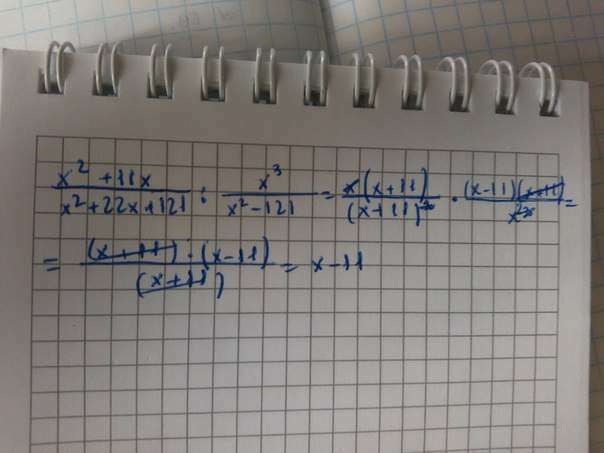 x² + 11x / x² + 22x + 121 : x³ / x² - 121 = x(x+11) / (x+11)² · (x-11)(x+11) / x³ =
= (x+11) · (x-11) / (x+11) = x - 11